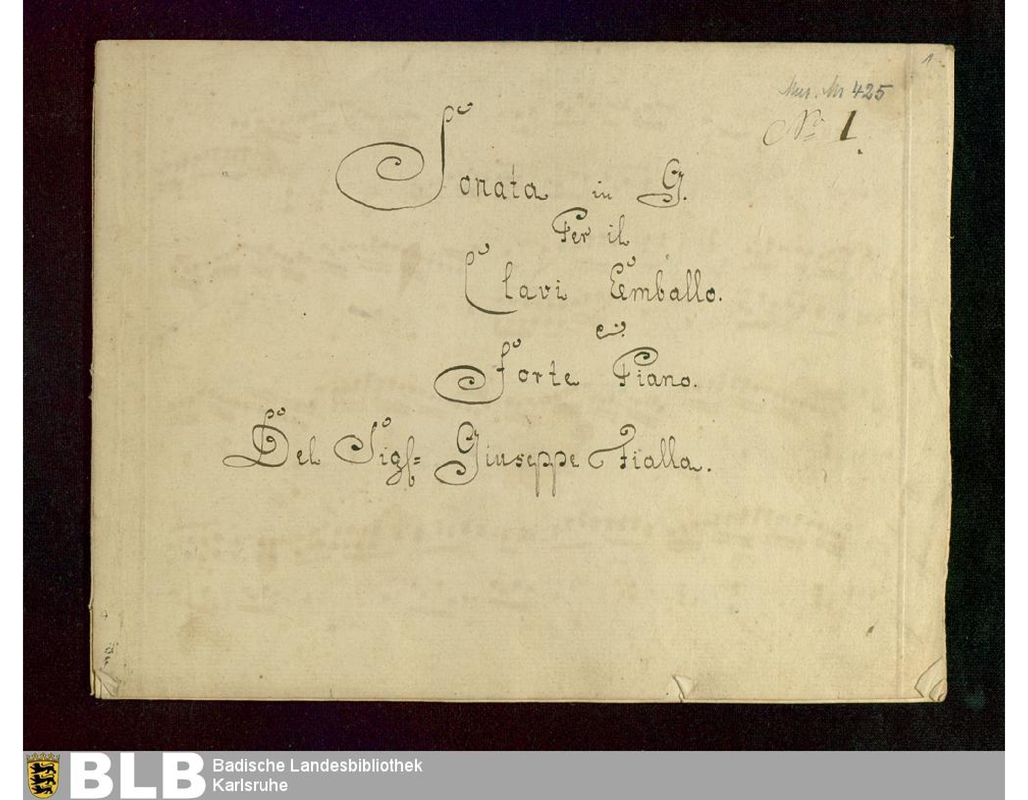 1
Mus. Nr 425
No 1.
Sonata in G.
Per il
Clavi Cemballo.
e
Forte Piano.
Del Sigr= Giuseppe Fialla.
BLB Badische Landesbibliothek
Karlsruhe